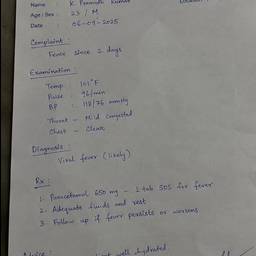 Name : K. Pramodh Kumar
Age / Sex : 23 / M
Date : 06-09-2025
Complaint :
Fever since 2 days
Examination :
Temp : 101°F
Pulse : 96/min
BP : 118/76 mmHg
Throat - Mild Congested
Chest - Clear
Diagnosis :
Viral fever (likely)
Rx :
1. Paracetamol 650 mg - 1 tab SOS for fever
2. Adequate fluids and rest
3. Follow up if fever persists or worsens
Advice :
well hydrated